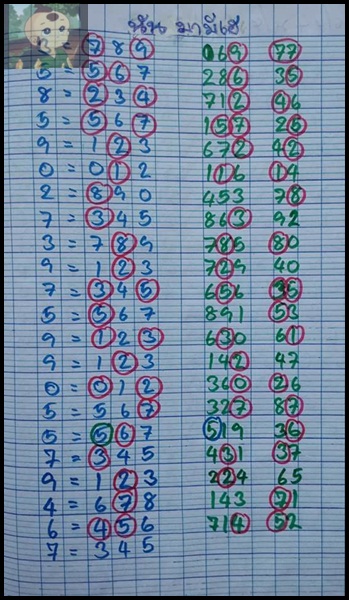 3 = 7 8 9 069 77
5 = 5 6 7 286 35
8 = 2 3 4 712 46
5 = 5 6 7 157 26
9 = 1 2 3 672 42
0 = 0 1 2 116 14
2 = 8 9 0 453 78
7 = 3 4 5 863 92
3 = 7 8 9 785 80
9 = 1 2 3 729 40
7 = 3 4 5 656 35
5 = 5 6 7 891 53
9 = 1 2 3 630 61
9 = 1 2 3 142 47
0 = 0 1 2 360 26
5 = 5 6 7 327 87
5 = 5 6 7 519 36
7 = 3 4 5 431 37
9 = 1 2 3 224 65
4 = 6 7 8 143 71
6 = 4 5 6 714 52
7 = 3 4 5